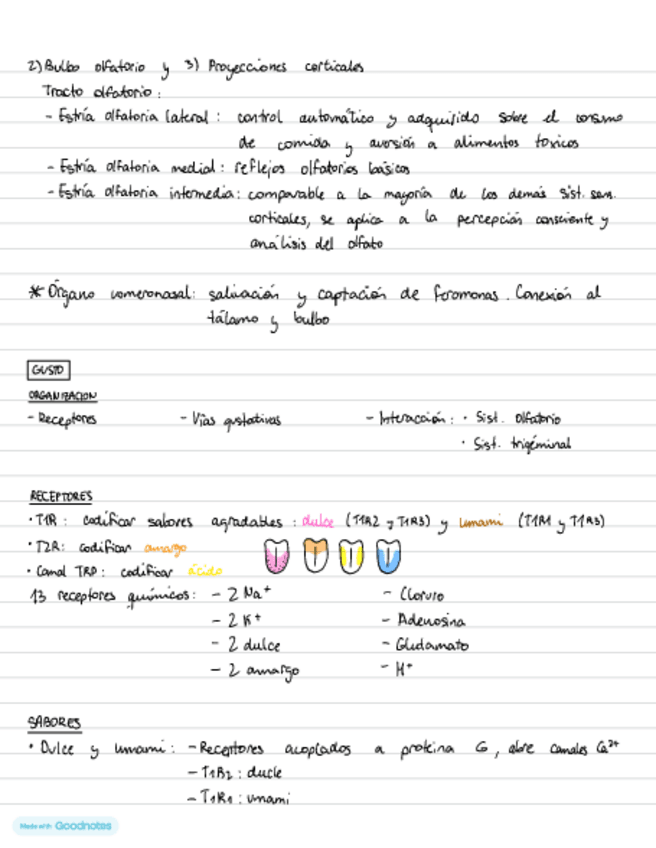 2) Bulbo olfatorio y 3) Proyecciones corticales
Tracto olfatorio:
- Estría olfatoria lateral: control automático y adquirido sobre el consumo
de comida y aversión a alimentos toxicos
- Estría olfatoria medial: reflejos olfatorios básicos
- Estría olfatoria intermedia: comparable a la mayoría de los demás sist. sen.
corticales, se aplica a la percepción consciente y
análisis del olfato
* Órgano vomeronasal: salivación y captación de feromonas. Conexión al
tálamo y bulbo
GUSTO
ORGANIZACION
- Receptores - Vías gustativas - Interacción: · Sist. Olfatorio
· Sist. trigéminal
RECEPTORES
· T1R: codificar sabores agradables: dulce (T1R2 y T1R3) y umami (T1R1 y T1R3)
· T2R: codificar amargo
· Canal TRP: codificar ácido
13 receptores químicos: - 2 Na⁺ - Cloruro
- 2 K⁺ - Adenosina
- 2 dulce - Glutamato
- 2 amargo - H⁺
SABORES
· Dulce y umami: - Receptores acoplados a proteina G, abre canales Ca²⁺
- T1R2: ducle
- T1R1: umami
Made with Goodnotes